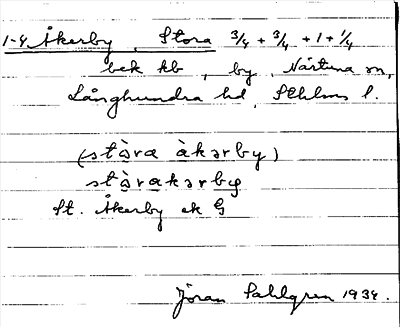 1-4 Åkerby, Stora 3/4 + 3/4 + 1 + 1/4
bek kb, by, Närtuna sn,
Långhundra hd, Sthlms l.
(stòra àkərby)
stòrakərby
St. Åkerby ek G
Jöran Sahlgren 1934.